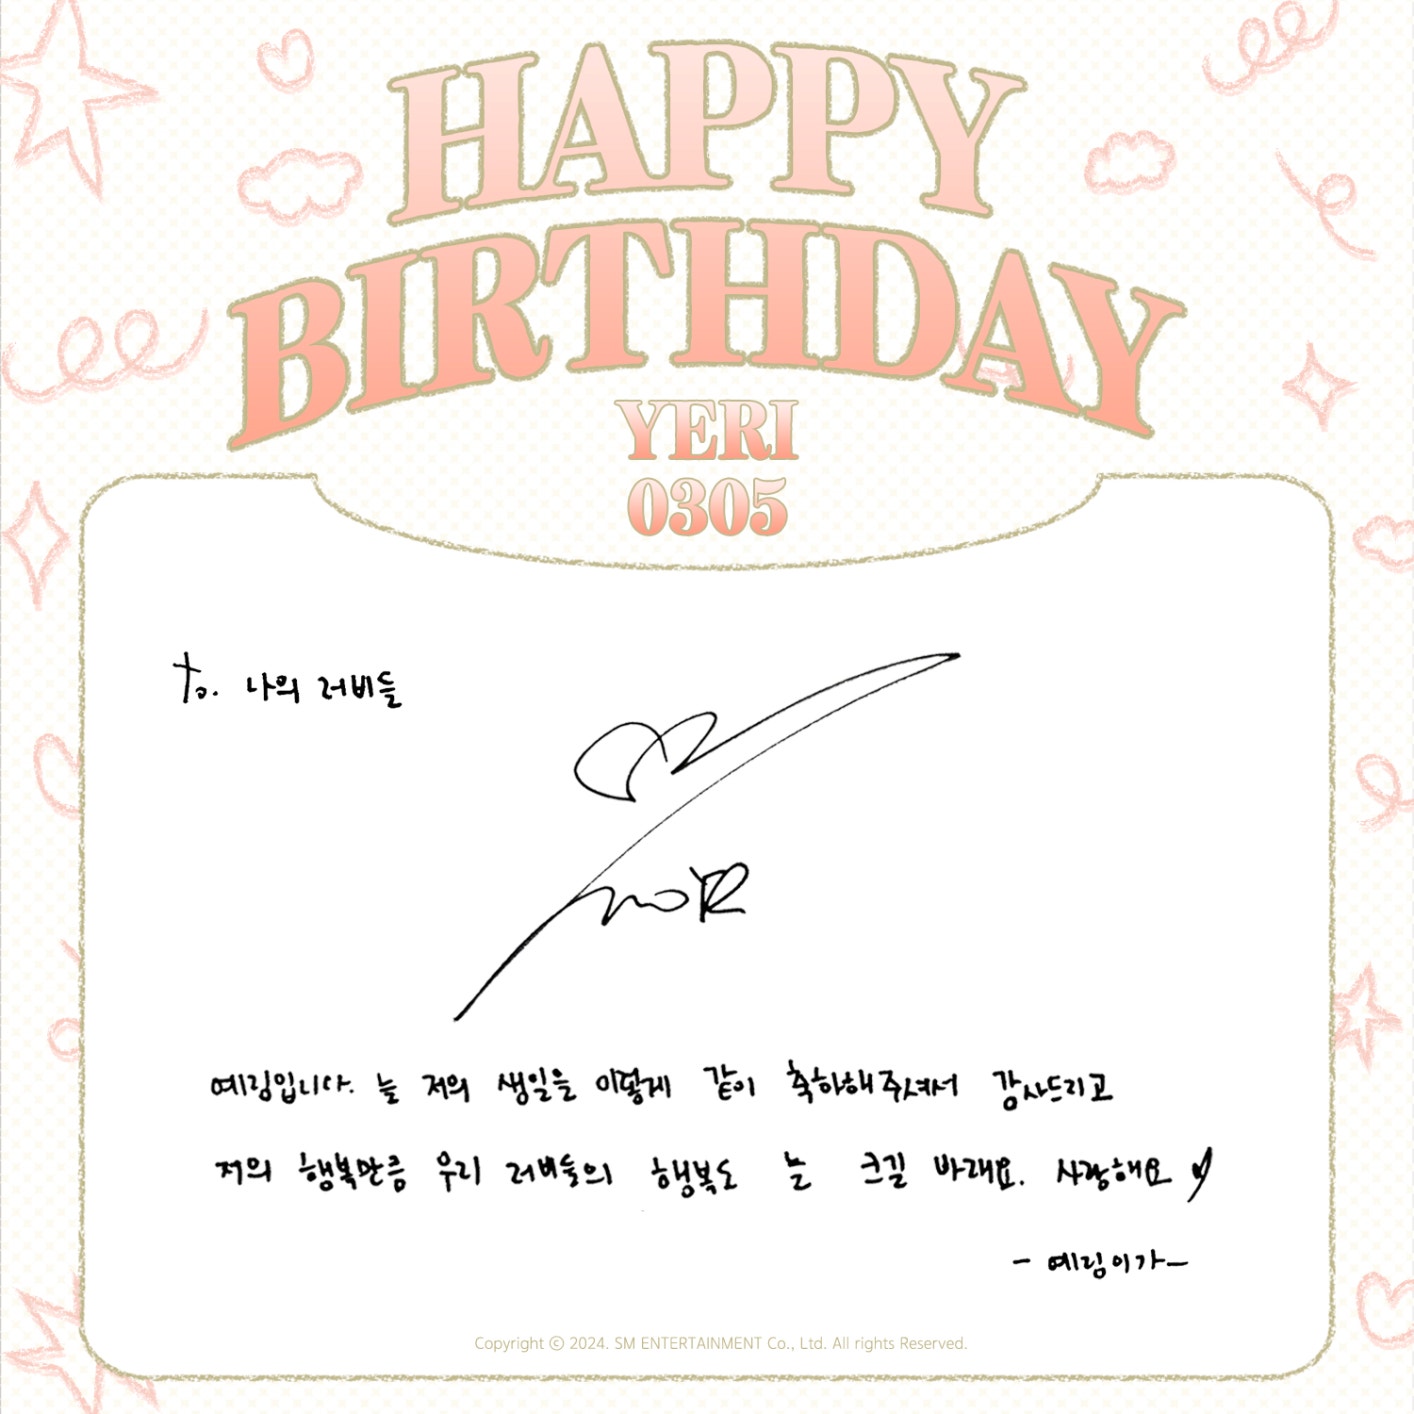 HAPPY
BIRTHDAY
YERI
0305
To. 나의 러비들
예림입니다. 늘 저의 생일을 이렇게 같이 축하해주셔서 감사드리고
저의 행복만큼 우리 러비들의 행복도 늘 크길 바래요. 사랑해요
- 예림이가 -
Copyright © 2024. SM ENTERTAINMENT Co., Ltd. All rights Reserved.